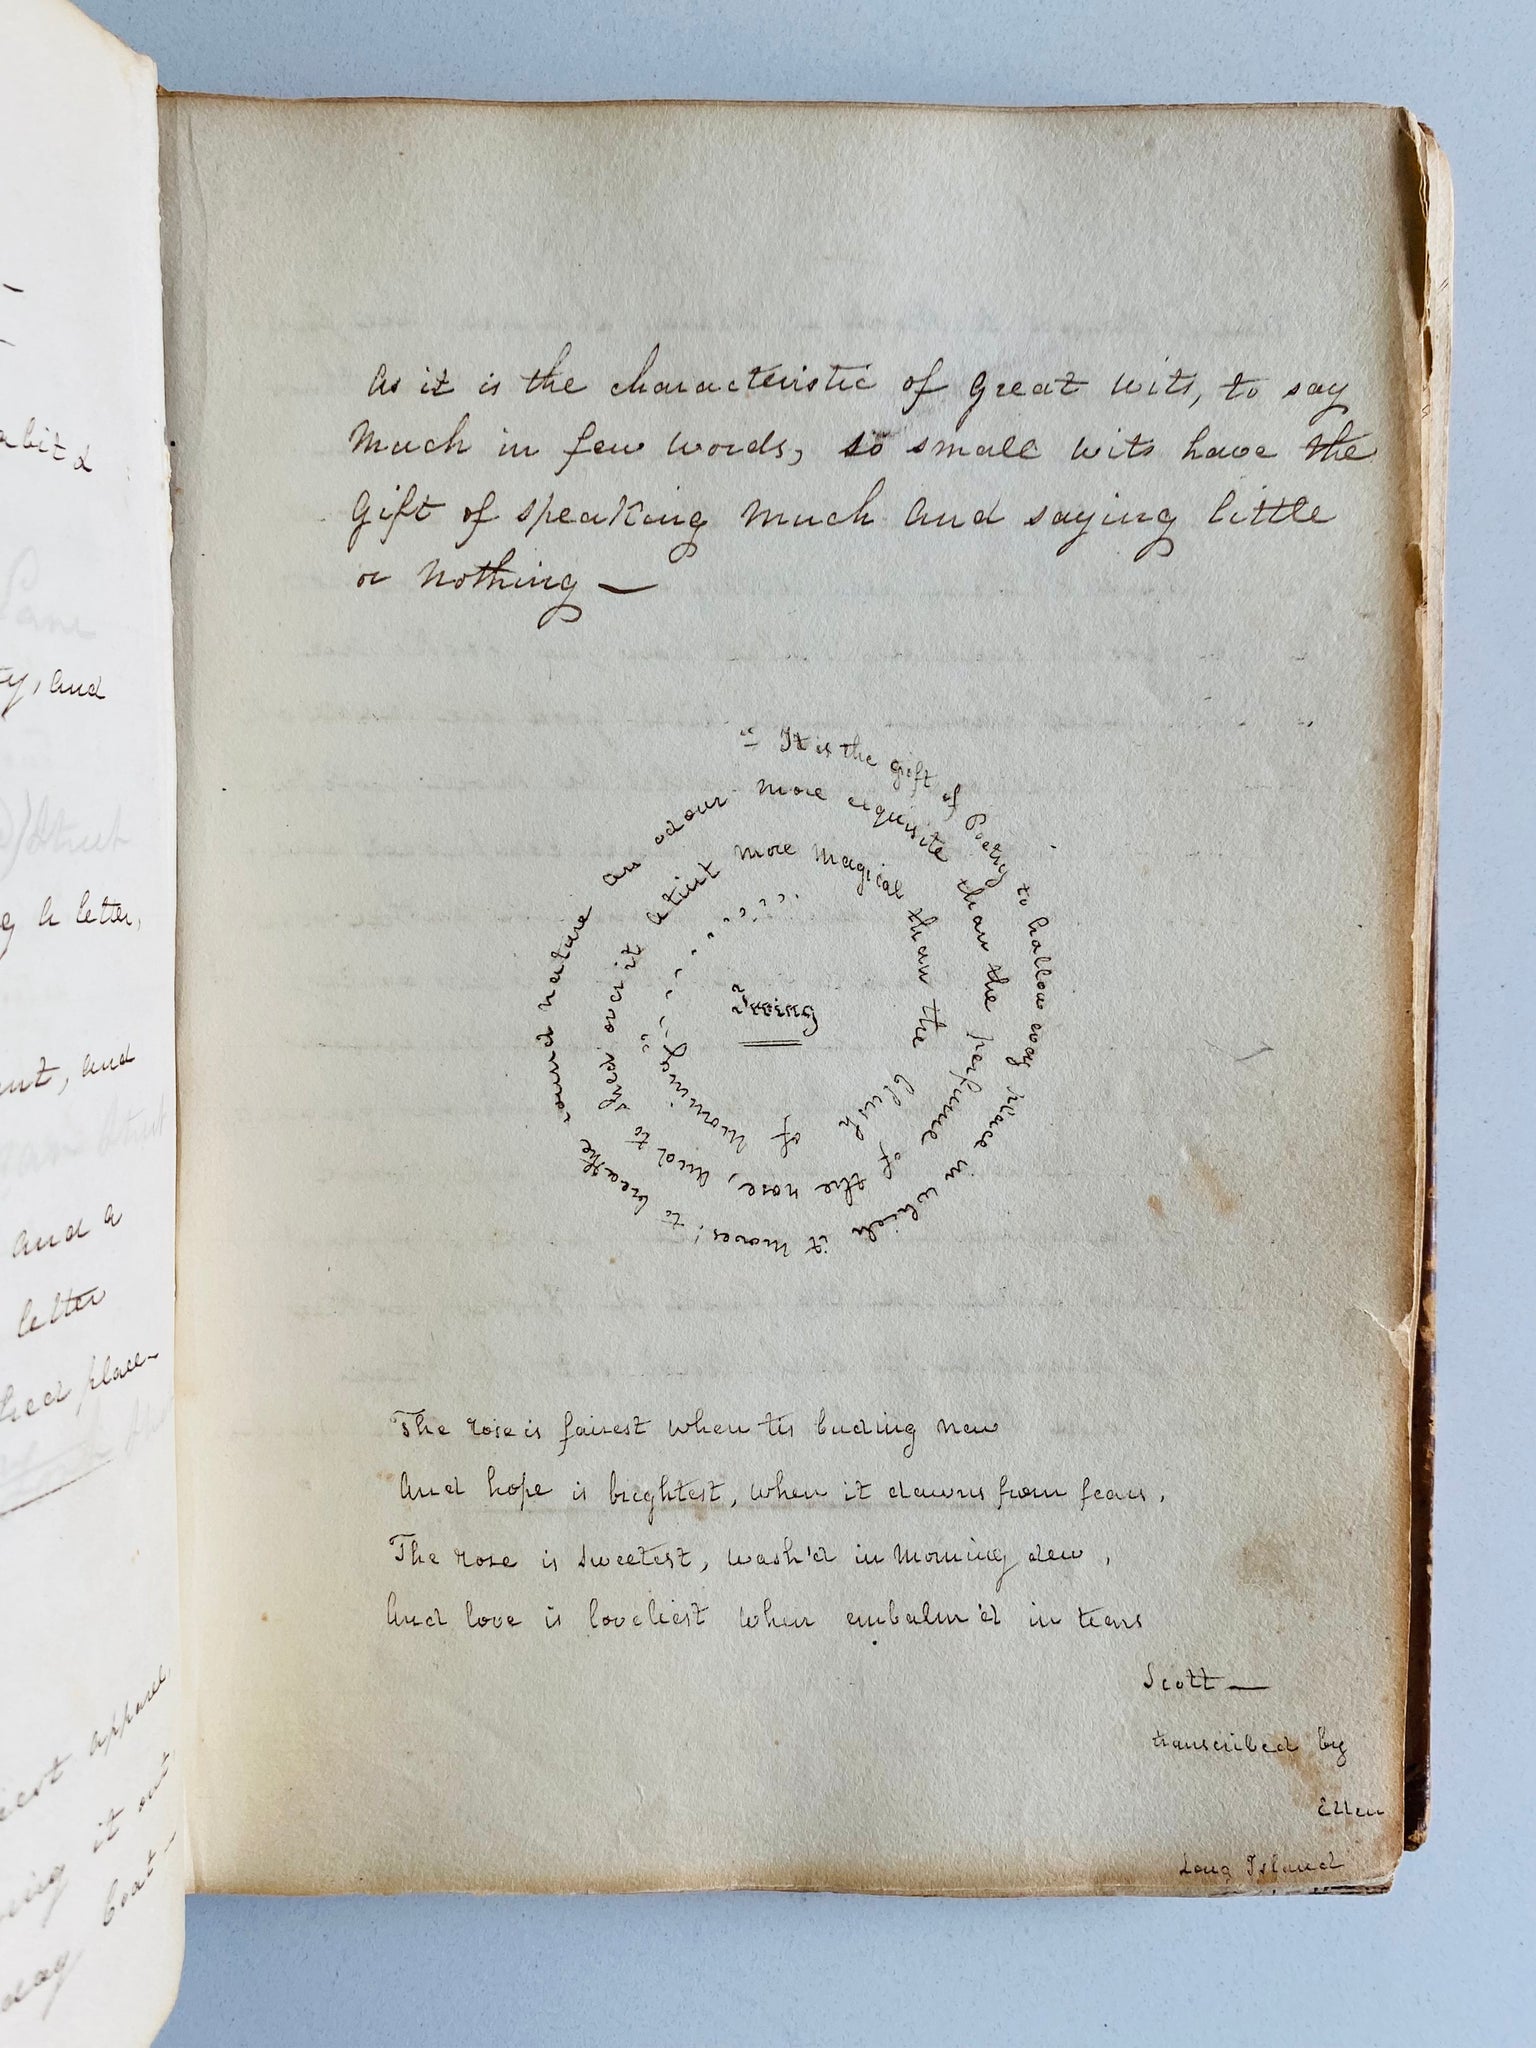 abit &
Lane
ty, and
letter,
ent, and
and a
letter
hed place—
apparel,
it out
boat—
day
As it is the characteristic of Great wits, to say
Much in few words, so small wits have the
Gift of speaking Much and saying little
or Nothing —
"It is the gift of Poetry to hallow every place in which it moves; to breathe round nature an odour more exquisite than the perfume of the rose, and to shed over it a tint more magical than the blush of Morning"
Irving
The rose is fairest when tis buding new
And hope is brightest, when it dawns from fears,
The rose is sweetest, wash'd in Morning dew,
And love is loveliest when embalm'd in tears
Scott —
transcribed by
Ellen
Long Island